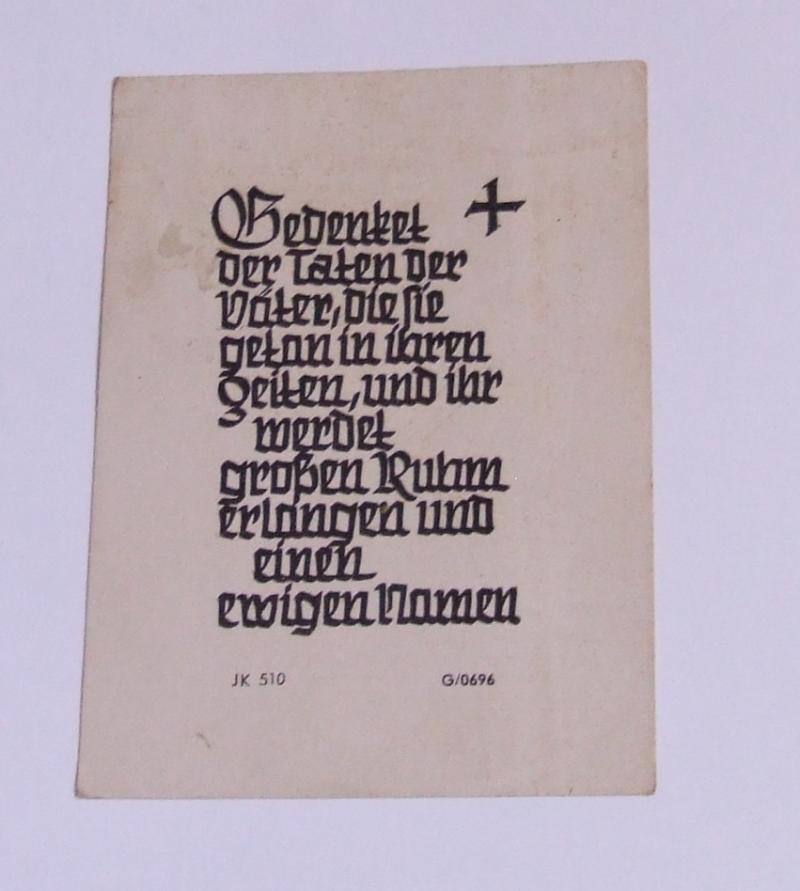 Gedenket +
der Taten der
Väter, die sie
getan in ihren
Zeiten, und ihr
werdet
großen Ruhm
erlangen und
einen
ewigen Namen
JK 510 G/0696